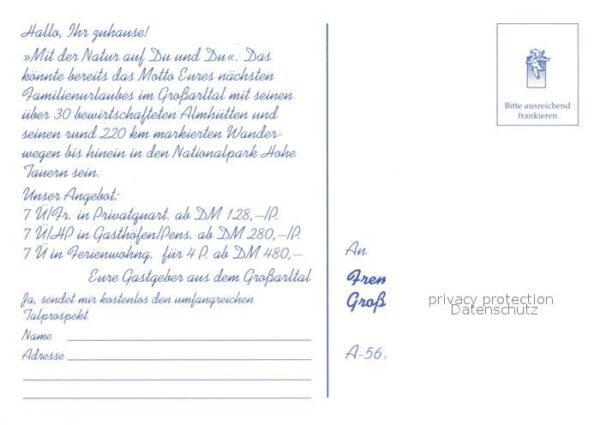 Hallo, Ihr zuhause!
»Mit der Natur auf Du und Du«. Das
könnte bereits das Motto Eures nächsten
Familienurlaubes im Großarltal mit seinen
über 30 bewirtschafteten Almhütten und
seinen rund 220 km markierten Wander-
wegen bis hinein in den Nationalpark Hohe
Tauern sein.
Unser Angebot:
7 Ü/Fr. in Privatquart. ab DM 128,-/P.
7 Ü/HP in Gasthöfen/Pens. ab DM 280,-/P.
7 Ü in Ferienwohng. für 4 P. ab DM 480,-
Eure Gastgeber aus dem Großarltal
Ja, sendet mir kostenlos den umfangreichen
Talprospekt
Name
Adresse
Bitte ausreichend
frankieren
An
Frem
Groß
A-56.
privacy protection
Datenschutz